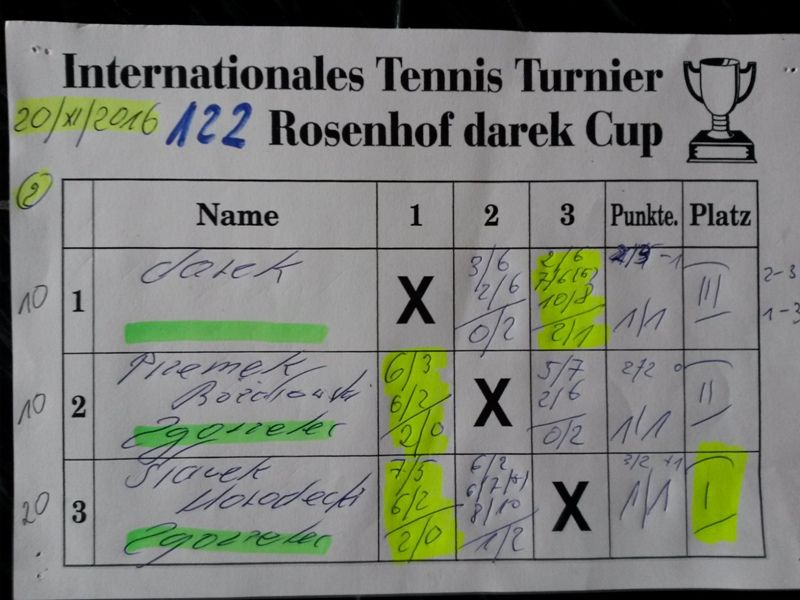 Internationales Tennis Turnier
20/XI/2016 122 Rosenhof darek Cup
2
Name 1 2 3 Punkte. Platz
10 1 darek X 3/6 2/6 0/2 2/6 7/6(5) 10/8 2/1 -1 1/1 III
2-3
1-3
10 2 Przemek X 6/3 6/2 2/0 5/7 2/6 0/2 2/2 0 1/1 II
Zgorzelec
20 3 Sławek 7/5 6/2 2/0 6/2 6/7 8/10 1/2 X 3/2 +1 1/1 I
Zgorzelec